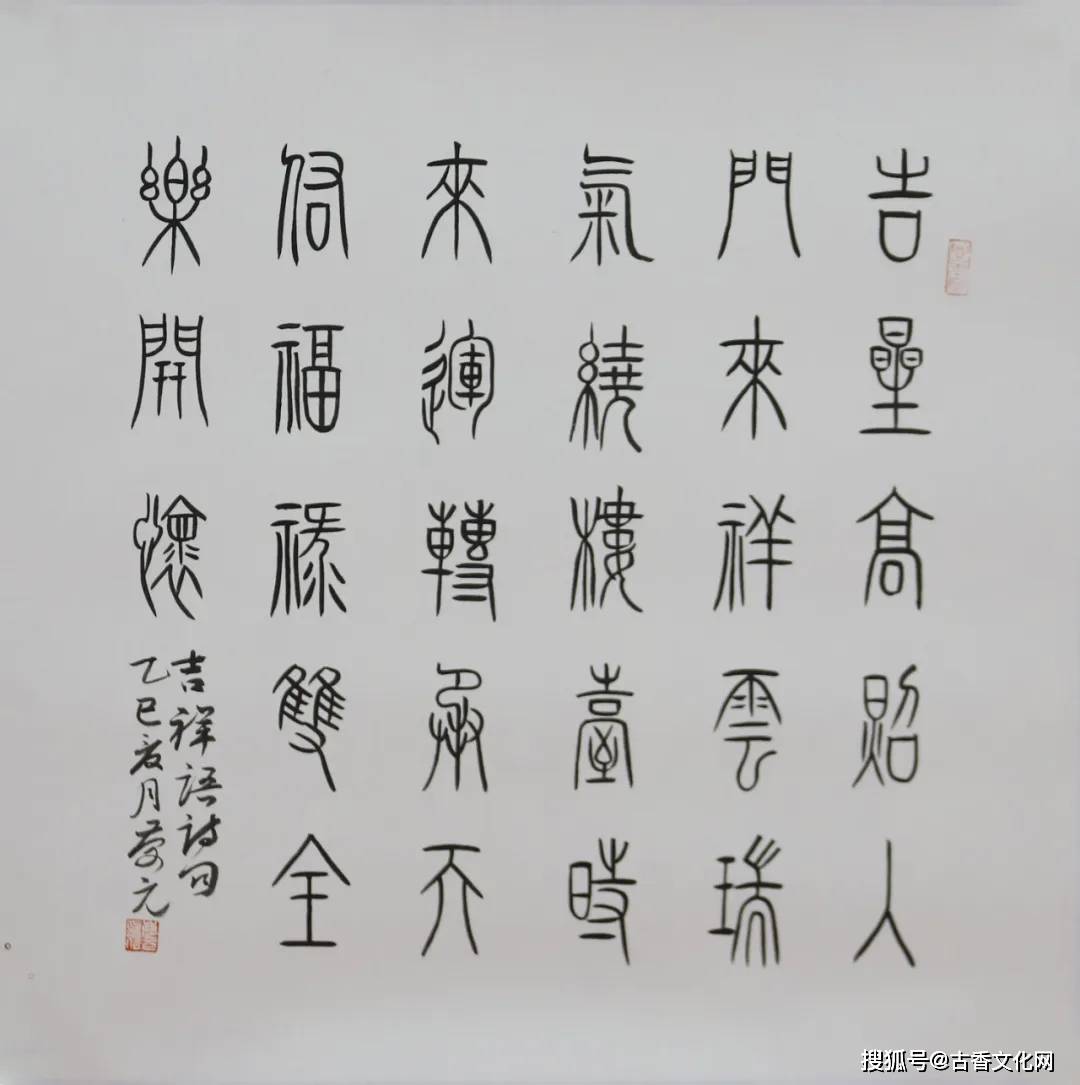 吉星高照入
門來祥雲瑞
氣繞樓臺時
來運轉承天
佑福祿雙全
樂開懷
吉祥語詩句
乙巳亥月元
搜狐号@古香文化网